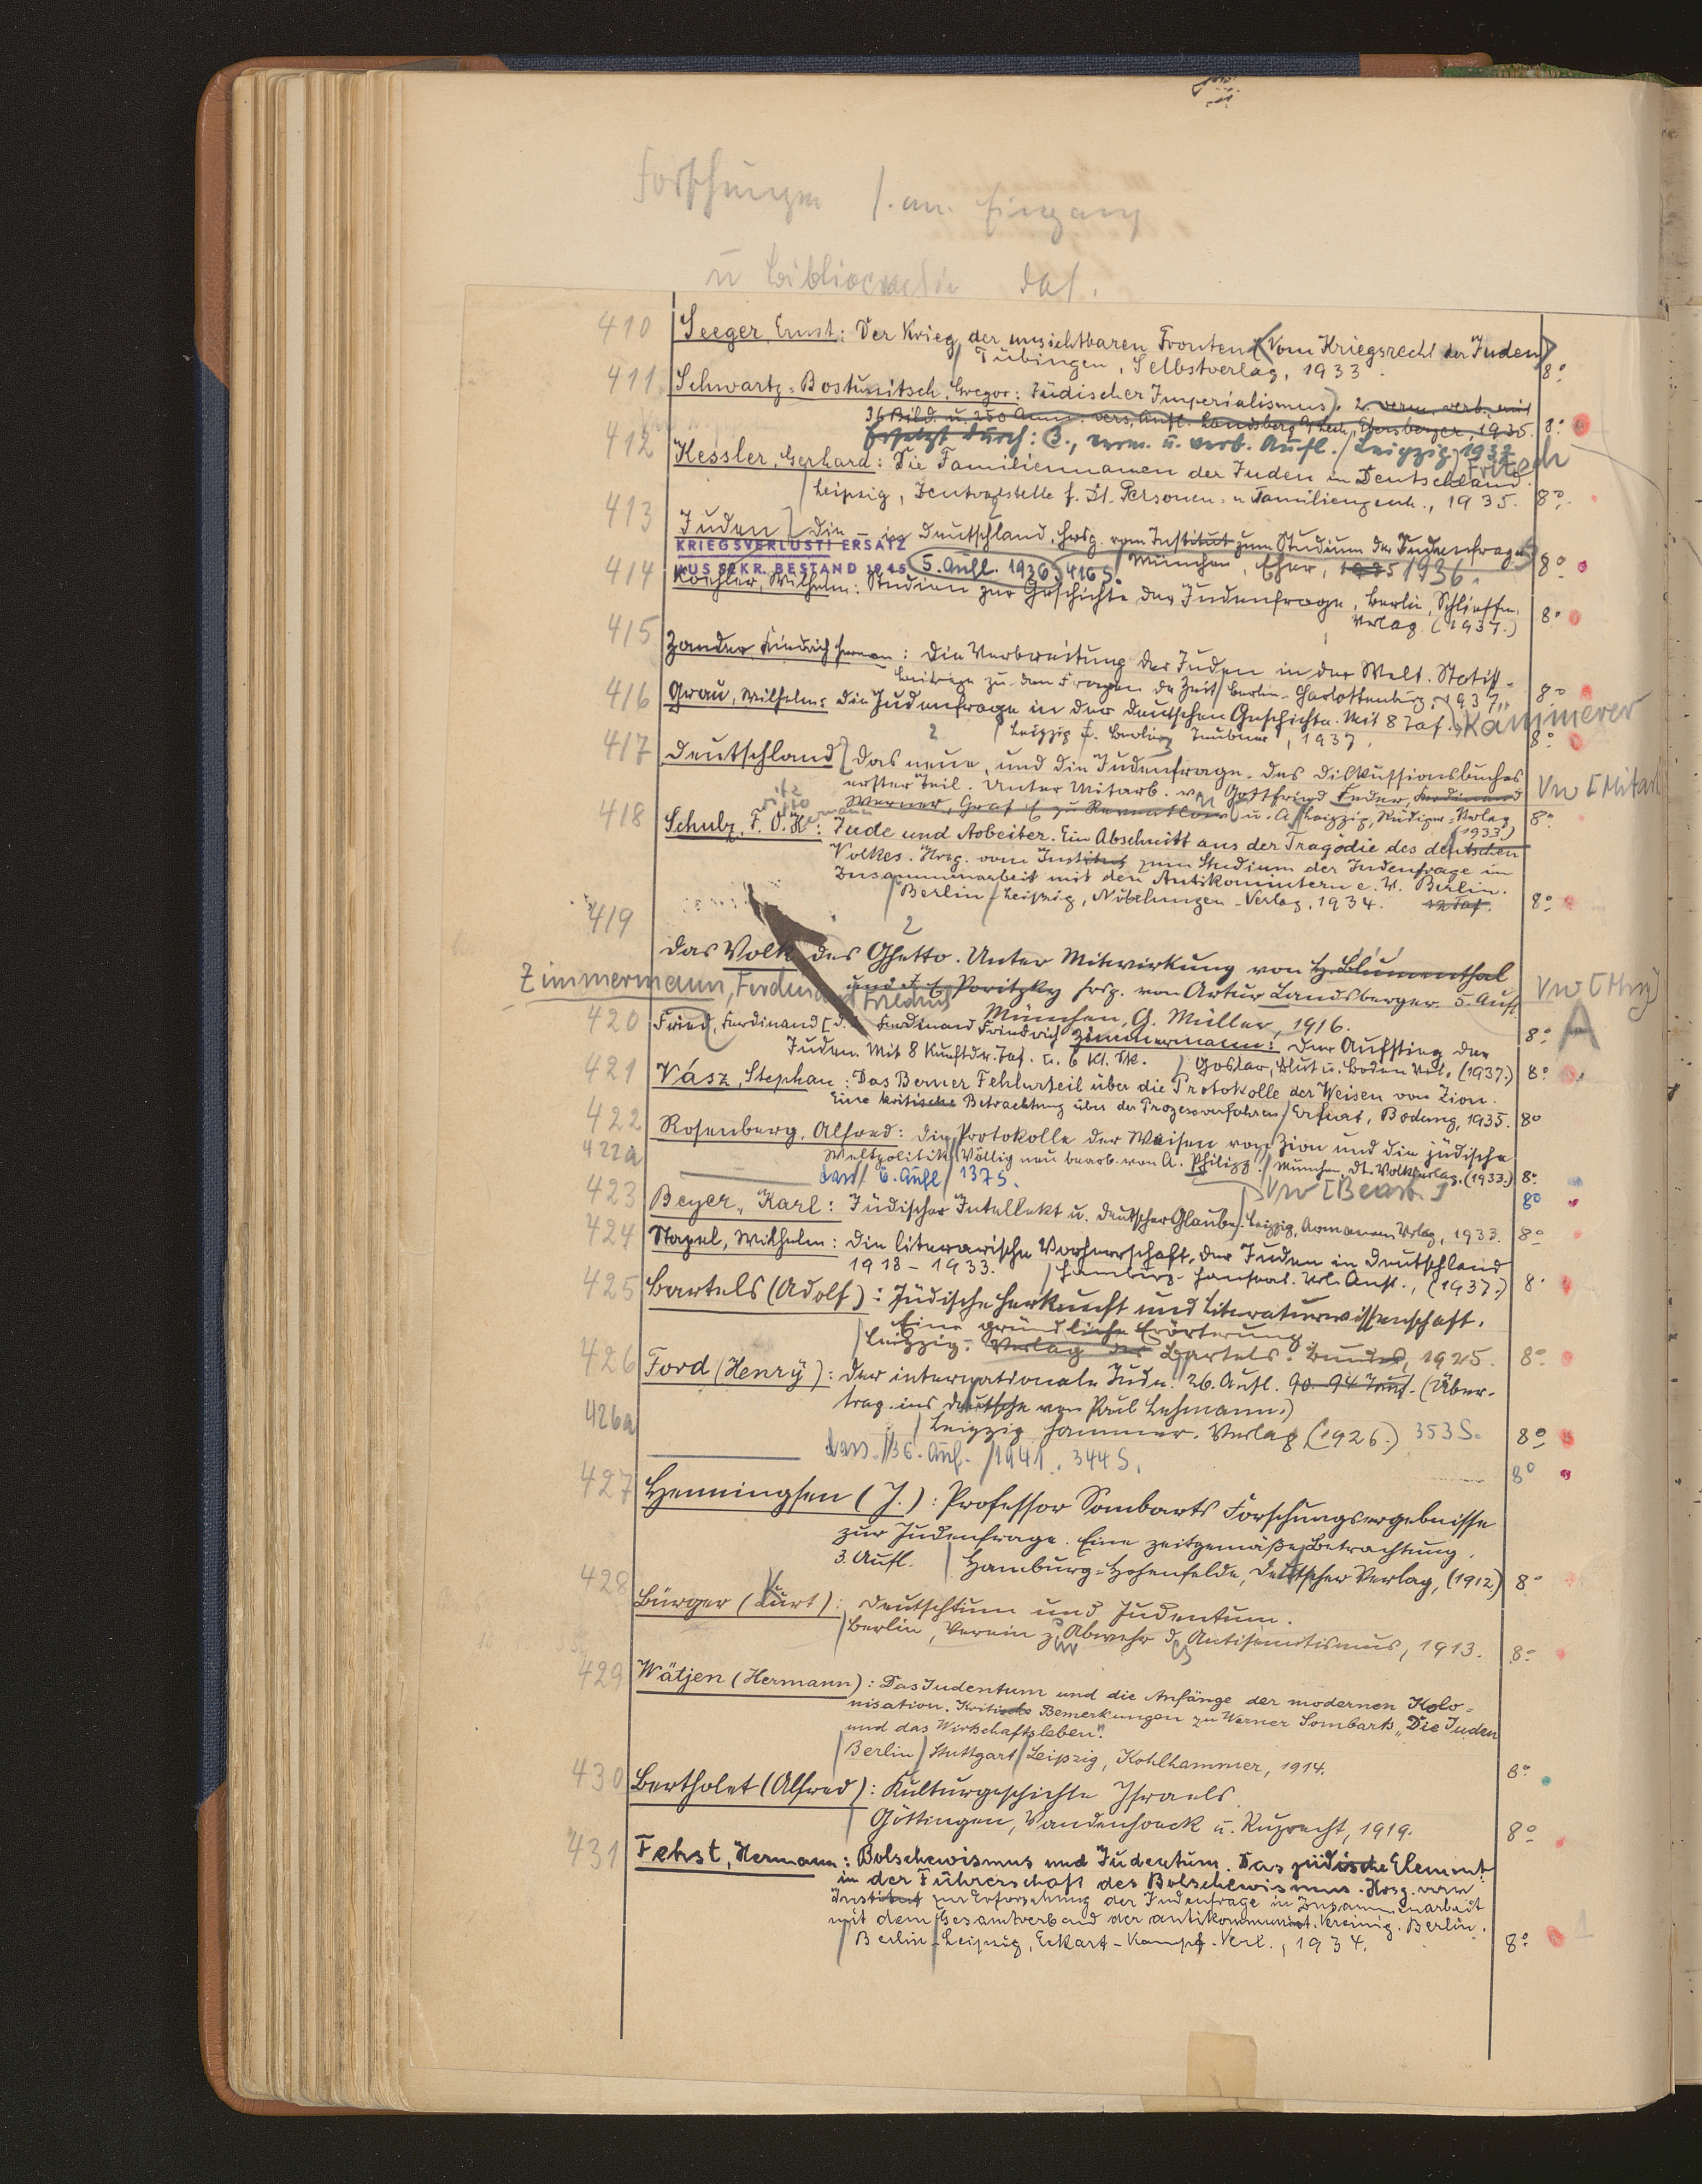 Forschungen s. am Eingang
u Bibliographie das.
410 Seeger, Ernst: Der Krieg der unsichtbaren Fronten (Vom Kriegsrecht der Juden)
Tübingen, Selbstverlag, 1933. 8°
411 Schwartz-Bostunitsch, Gregor: Jüdischer Imperialismus. 2. verm. verb. mit
36 Bild. u. 250 Anm. vers. Aufl. Landsberg a/Lech, Ebersberger, 1935. 8°
Ersetzt durch: 3., verm. u. verb. Aufl. / Leipzig, 1937
Fritsch
412 Kessler, Gerhard: Die Familiennamen der Juden in Deutschland.
Leipzig, Zentralstelle f. Dt. Personen- u. Familiengesch., 1935. 8°
413 Juden] Die – in Deutschland. Hrsg. vom Institut zum Studium der Judenfrage
KRIEGSVERLUST! ERSATZ
AUS SEKR. BESTAND 1945 5. Aufl. 1936, 416 S. München, Eher, 1935 1936. 8°
414 Koehler, Wilhelm: Studien zur Geschichte der Judenfrage, Berlin, Schlieffen-
Verlag. (1937.) 8°
415 Zander, Friedrich Herman: Die Verbreitung der Juden in der Welt. Statist.
Beiträge zu den Fragen der Zeit / Berlin-Charlottenburg, 1937, 8°
Kammerer
416 Grau, Wilhelm: Die Judenfrage in der deutschen Geschichte. Mit 8 Taf.
Leipzig u. Berlin, Teubner, 1937. 8°
417 Deutschland] Das neue, und die Judenfrage. Des Diskussionsbuches
erster Teil. Unter Mitarb. v. Gottfried Feder, Ferdinand VW [Mitarb
Werner, Graf E. zu Reventlow u. A. / Leipzig, Rüdiger-Verlag (1933) 8°
418 Schulz, F. O. H.: Jude und Arbeiter. Ein Abschnitt aus der Tragödie des deutschen
Volkes. Hrsg. vom Institut zum Studium der Judenfrage in
Zusammenarbeit mit den Antikomintern e. V. Berlin.
Berlin / Leipzig, Nibelungen-Verlag, 1934. 12 Taf. 8°
419 Das Volk des Ghetto. Unter Mitwirkung von H. Blumenthal
und J. E. Poritzky hrsg. von Artur Landsberger. 5. Aufl. VW [Hrsg]
München, G. Müller, 1916. 8° A
Zimmermann, Ferdinand Friedrich
420 Fried, Ferdinand [d. i. Ferdinand Friedrich Zimmermann: Der Aufstieg der
Juden. Mit 8 Kunstdr. Taf. u. 6 Kt. Sk. / Goslar, Blut u. Boden Verl. (1937.) 8°
421 Vász, Stephan: Das Berner Fehlurteil über die Protokolle der Weisen von Zion.
Eine kritische Betrachtung über das Prozessverfahren / Erfurt, Bodung, 1935. 8°
422 Rosenberg, Alfred: Die Protokolle der Weisen von Zion und die jüdische
Weltpolitik / Völlig neu bearb. von A. Philipp. / München, Dt. Volksverlag. (1933.) 8°
422a dass. / 6. Aufl / 137 S. VW [Bearb.] 8°
423 Beyer, Karl: Jüdischer Intellekt u. deutscher Glaube. Leipzig, Armanen Verlag, 1933. 8°
424 Stapel, Wilhelm: Die literarische Vorherrschaft der Juden in Deutschland
1918-1933. / Hamburg, Hanseat. Verl. Anst., (1937.) 8°
425 Bartels (Adolf): Jüdische Herkunft und Literaturwissenschaft.
Eine gründliche Erörterung.
Leipzig: Verlag des Bartels-Bundes, 1925. 8°
426 Ford (Henry): Der internationale Jude. 26. Aufl. 90.-94 Taus. (Über-
trag. ins deutsche von Paul Lehmann.)
Leipzig Hammer-Verlag (1926.) 353 S. 8°
426a dass. / 36. Aufl. / 1941. 344 S. 8°
427 Henningsen (J.): Professor Sombarts Forschungsergebnisse
zur Judenfrage. Eine zeitgemäße Betrachtung.
3. Aufl. / Hamburg-Hohenfelde, Deutscher Verlag, (1912) 8°
428 Bürger (Kurt): Deutschtum und Judentum.
Berlin, Verein z. Abwehr d. Antisemitismus, 1913. 8°
429 Wätjen (Hermann): Das Judentum und die Anfänge der modernen Kolo-
nisation. Kritische Bemerkungen zu Werner Sombarts „Die Juden
und das Wirtschaftsleben".
Berlin / Stuttgart / Leipzig, Kohlhammer, 1914. 8°
430 Bertholet (Alfred): Kulturgeschichte Israels.
Göttingen, Vandenhoeck u. Ruprecht, 1919. 8°
431 Fehst, Hermann: Bolschewismus und Judentum. Das jüdische Element
in der Führerschaft des Bolschewismus. Hrsg. vom
Institut zur Erforschung der Judenfrage in Zusammenarbeit
mit dem Gesamtverband der antikommunist. Vereinig. Berlin.
Berlin-Leipzig, Eckart-Kampf-Verl., 1934. 8° 1